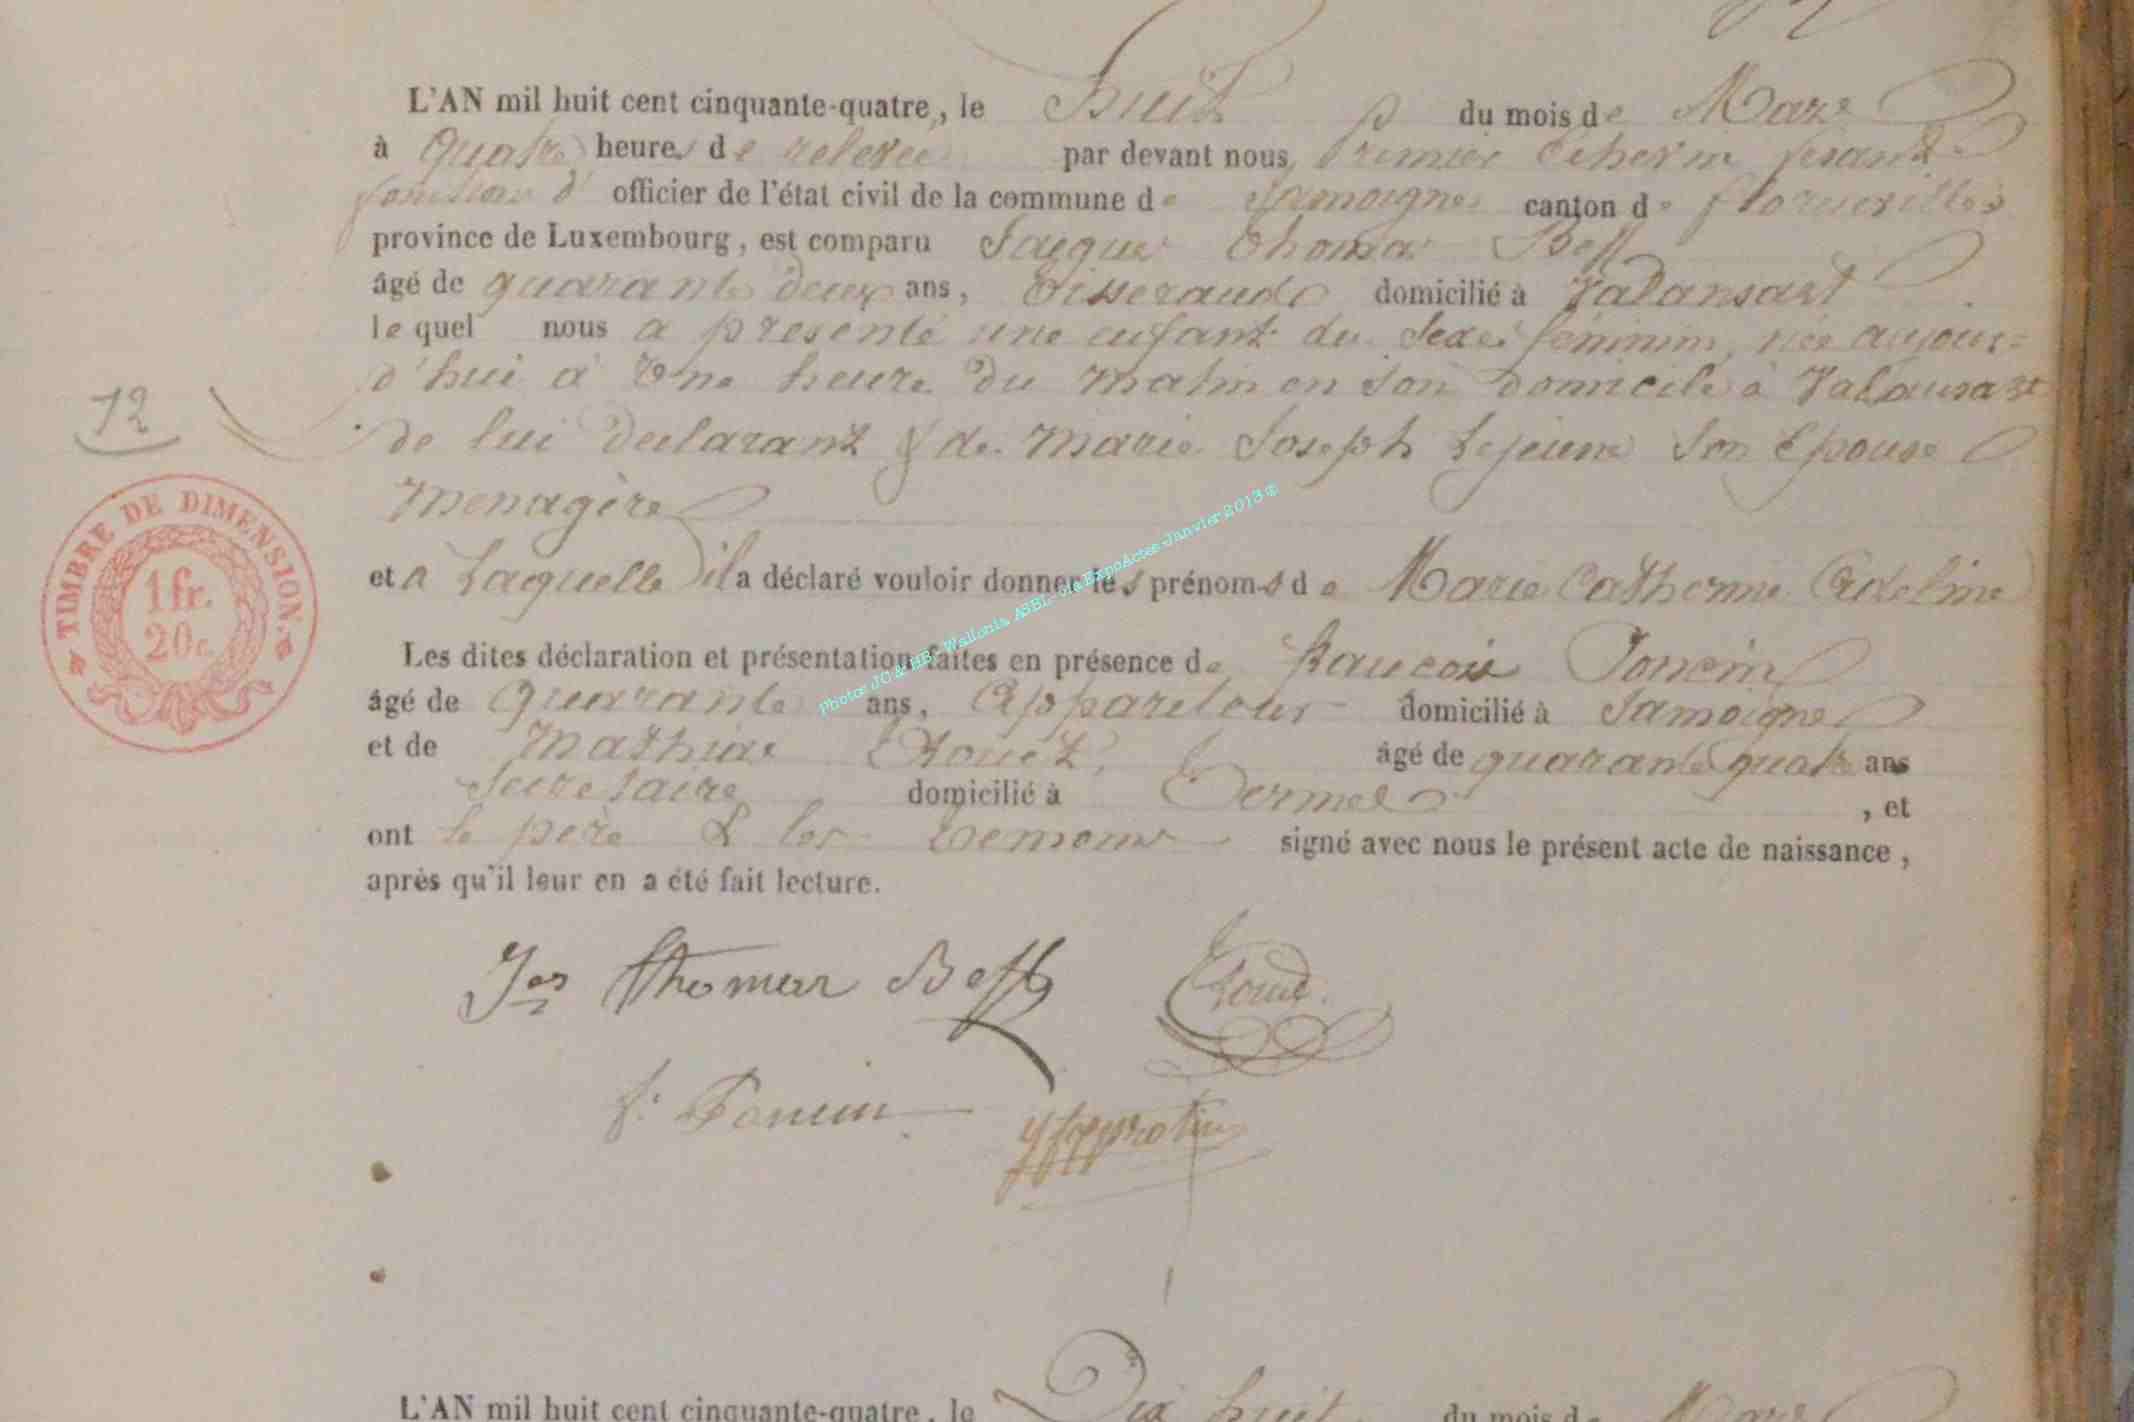 L'AN mil huit cent cinquante-quatre, le Huit du mois de Mars
à Quatre heures de relevée par devant nous, Premier Echevin fesant
fonctions d' officier de l'état civil de la commune de Jamoigne canton de florenville
province de Luxembourg, est comparu Jacques Thomas Beff
âgé de quarante deux ans, Tisserand domicilié à Valansart
le quel nous a présenté une enfant du Sexe féminin, née aujour=
d'hui à Une heure du matin en son domicile à Valansart
12
de lui declarant & de Marie Joseph Lejeune son Epouse
Menagère
et a Laquelle il a déclaré vouloir donner les prénoms de Marie Catherine Adeline
TIMBRE DE DIMENSION.
1 fr.
20 c.
Les dites déclaration et présentation faites en présence de francois Poncin
âgé de Quarante ans, Appariteur domicilié à Jamoigne
et de Mathias âgé de quarante quatre ans
Secretaire domicilié à Termes, et
ont le père & les temoins signé avec nous le présent acte de naissance,
après qu'il leur en a été fait lecture.
Photos JC & HB - Wallonia ASBL - via ExpoActes - Janvier 2013 ®
Jes Thomas Beff
f. Poncin
L'AN mil huit cent cinquante-quatre, le Dix huit du mois de Mars